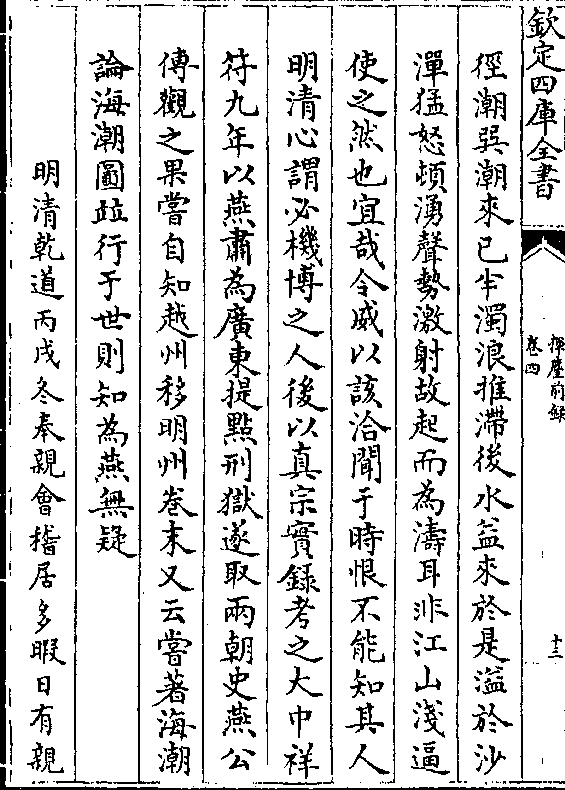 欽定四庫全書
揮麈前録
卷四
十三
徑潮巽潮來已半濁浪推滯後水益來於是溢於沙
潬猛怒頓湧聲勢激射故起而為濤耳非江山淺逼
使之然也宜哉令威以該洽聞于時恨不能知其人
明清心謂必機博之人後以真宗實録考之大中祥
符九年以燕肅為廣東提點刑獄遂取兩朝史燕公
傳觀之果嘗自知越州移明州卷末又云嘗著海潮
論海潮圖竝行于世則知為燕無疑
明清乾道丙戌冬奉親會稽居多暇日有親